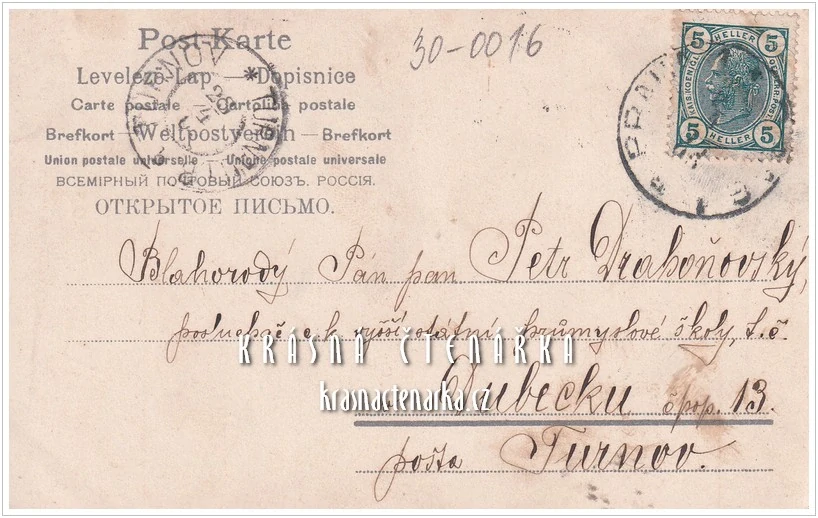 Post-Karte
30-0016
Levelező-Lap — Dopisnice
Carte postale — Cartolina postale
Brefkort — Weltpostverein — Brefkort
Union postale universelle — Unione postale universale
ВСЕМІРНЫЙ ПОЧТОВЫЙ СОЮЗЪ. РОССІЯ.
ОТКРЫТОЕ ПИСЬМО.
TURNOV * TURNAU
28
5 HELLER 5
KAIS. KOENIGL. OESTERR. POST.
5 HELLER 5
PRAHA
Blahorodý Pán pan Petr Drahoňovský,
posluchač c. k. vyšší státní průmyslové školy, t. č.
KRÁSNÁ ČTENÁŘKA
krasnactenarka.cz
Dubecku č. pop. 13.
pošta Turnov.